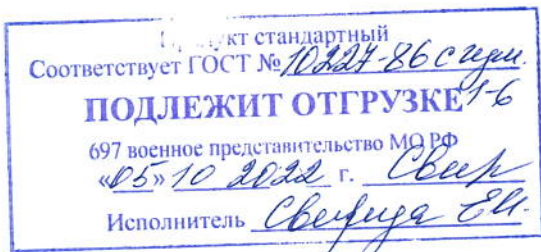 Продукт стандартный
Соответствует ГОСТ № 10227-86 с изм. 1-6
ПОДЛЕЖИТ ОТГРУЗКЕ
697 военное представительство МО РФ
«05» 10 2022 г.
Исполнитель